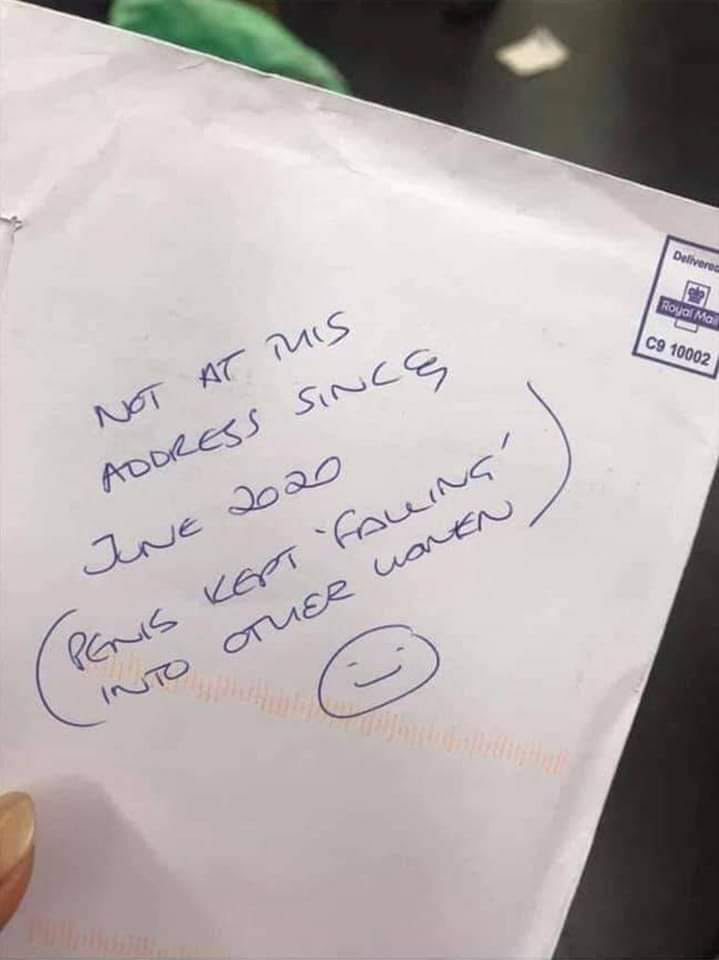 Delivered
Royal Mail
C9 10002
NOT AT THIS
ADDRESS SINCE
JUNE 2020
(PENIS KEPT 'FALLING'
INTO OTHER WOMEN)